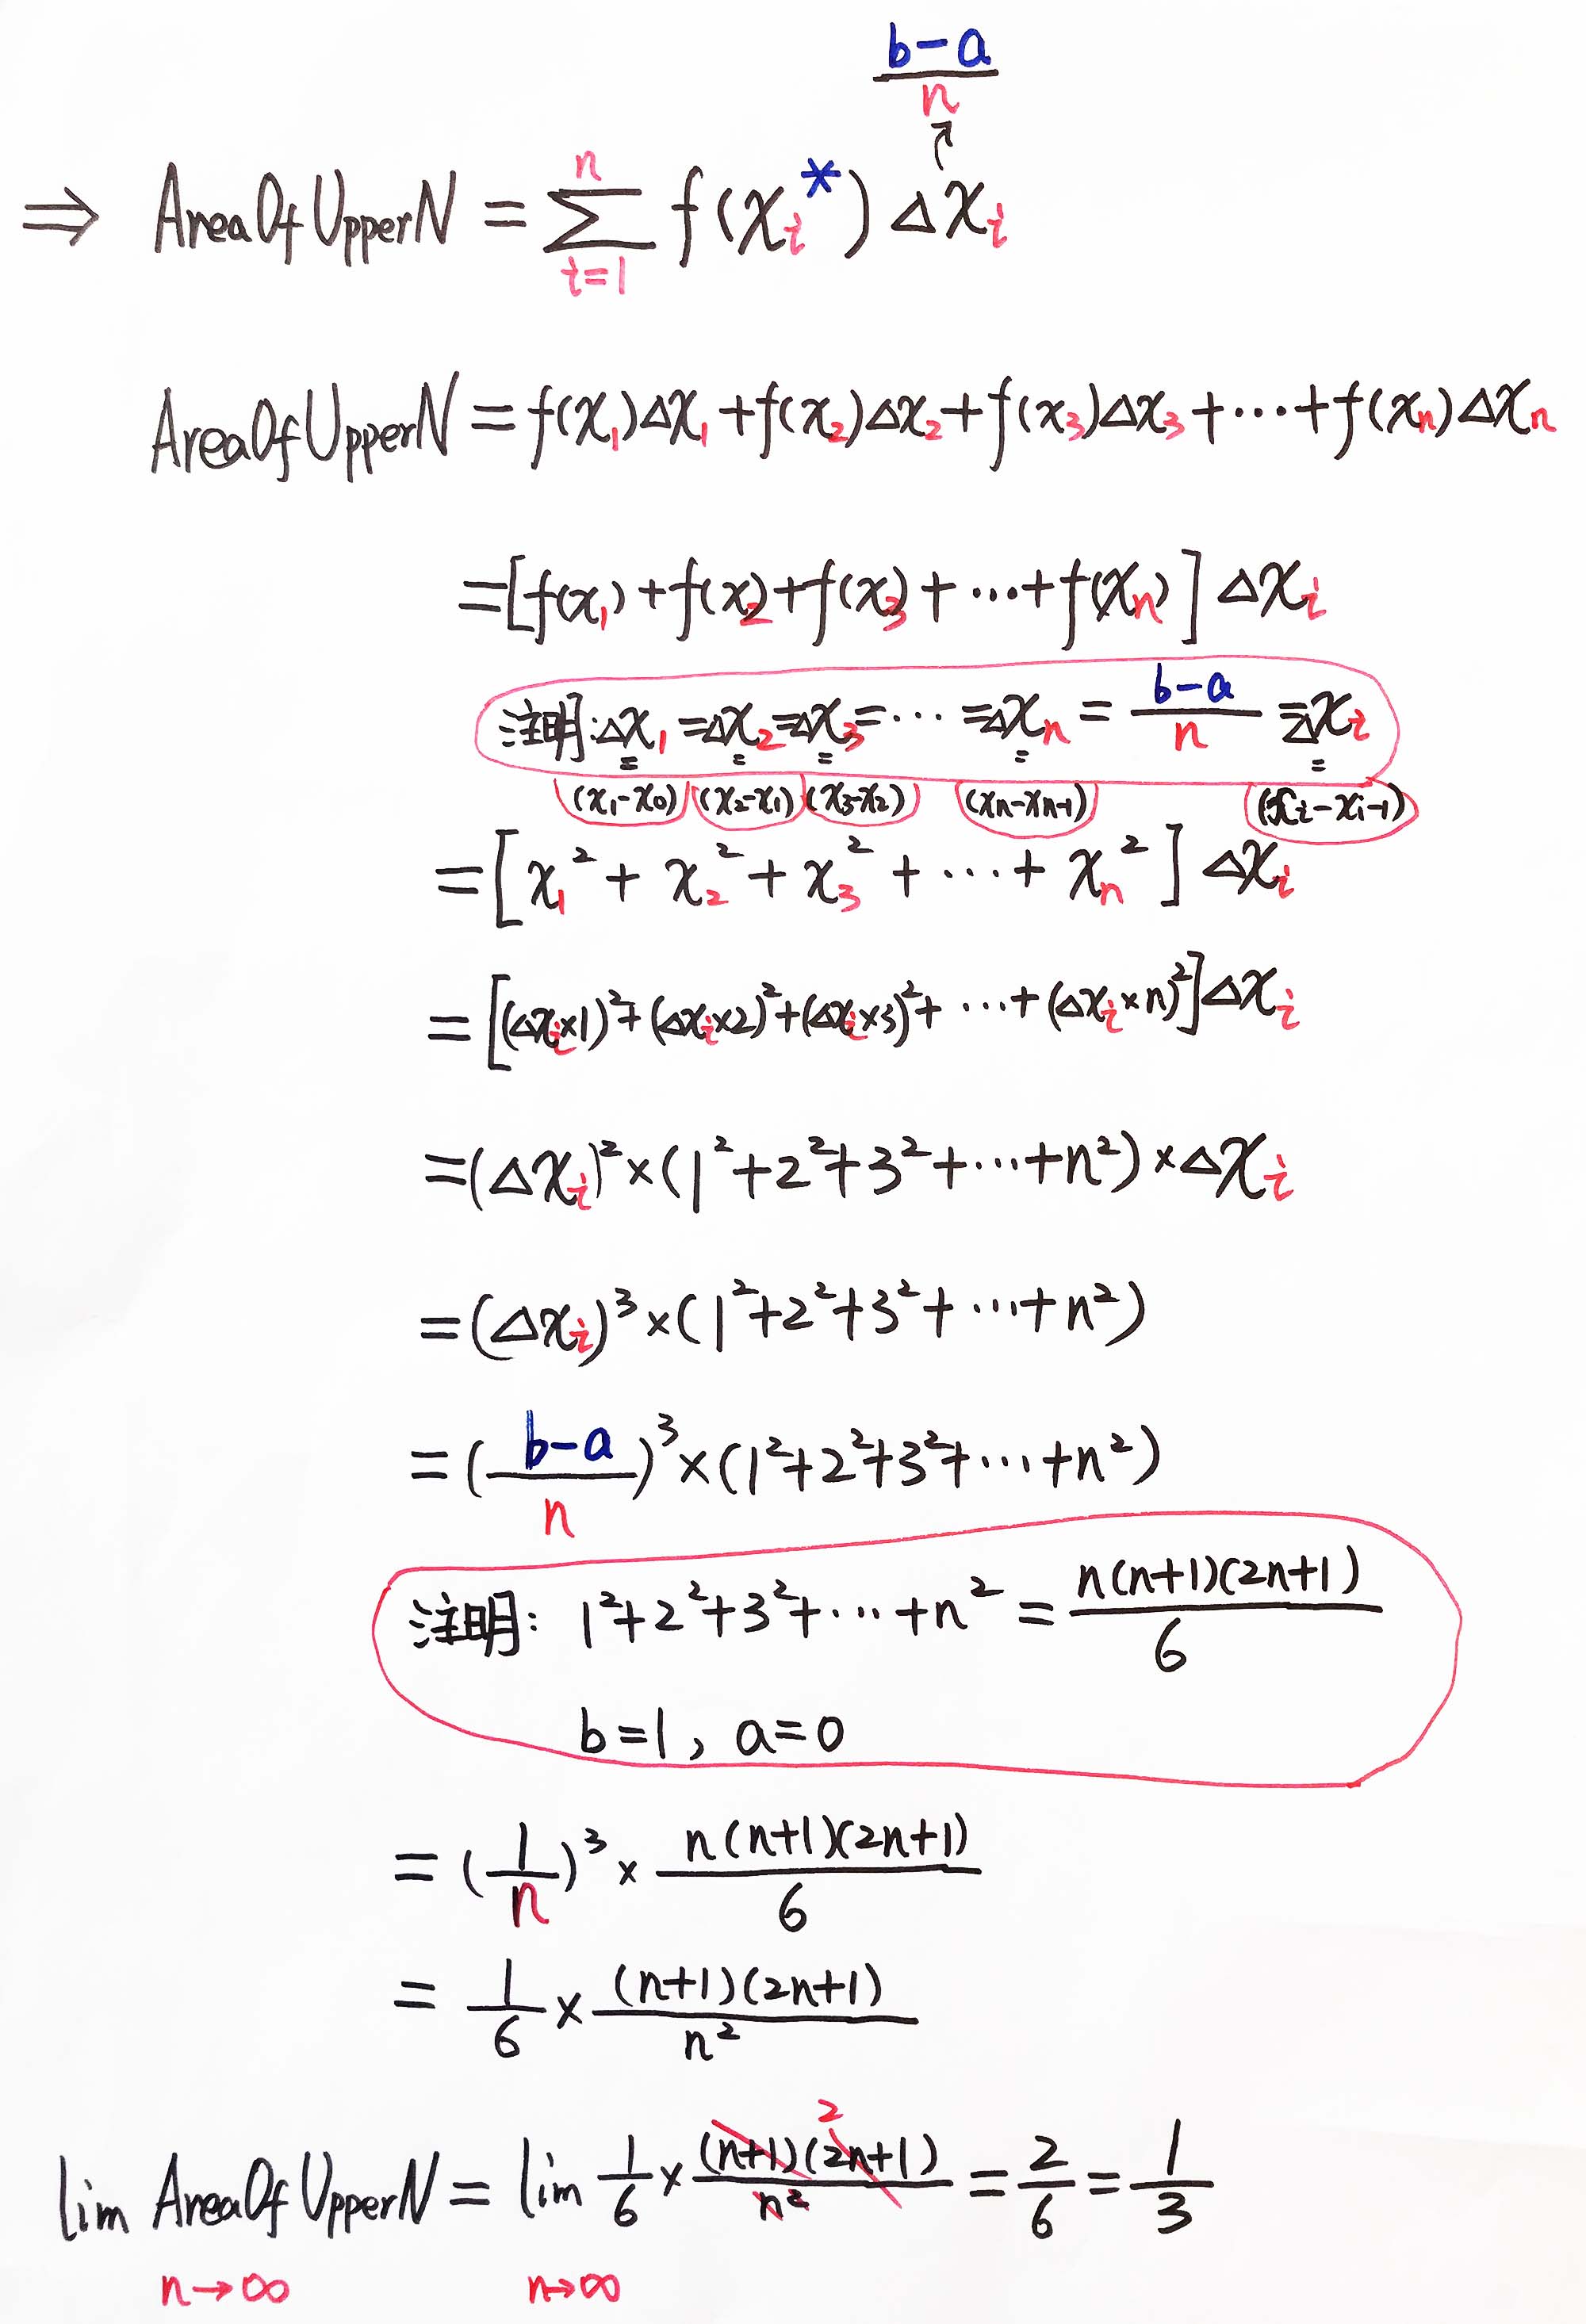 b-a
n
⇒ AreaOfUpperN = ∑ f(xᵢ*) Δxᵢ
n
i=1
AreaOfUpperN = f(x₁)Δx₁ + f(x₂)Δx₂ + f(x₃)Δx₃ + ··· + f(xₙ)Δxₙ
= [f(x₁) + f(x₂) + f(x₃) + ··· + f(xₙ)] Δxᵢ
注明: Δx₁ = Δx₂ = Δx₃ = ··· = Δxₙ = (b-a)/n = Δxᵢ
= = = = =
(x₁-x₀) (x₂-x₁) (x₃-x₂) (xₙ-xₙ₋₁) (xᵢ-xᵢ₋₁)
= [x₁² + x₂² + x₃² + ··· + xₙ²] Δxᵢ
= [(Δxᵢ×1)² + (Δxᵢ×2)² + (Δxᵢ×3)² + ··· + (Δxᵢ×n)²] Δxᵢ
= (Δxᵢ)² × (1²+2²+3²+···+n²) × Δxᵢ
= (Δxᵢ)³ × (1²+2²+3²+···+n²)
= ((b-a)/n)³ × (1²+2²+3²+···+n²)
注明: 1²+2²+3²+···+n² = n(n+1)(2n+1)/6
b=1, a=0
= (1/n)³ × n(n+1)(2n+1)/6
= 1/6 × (n+1)(2n+1)/n²
2
lim AreaOfUpperN = lim 1/6 × (n+1)(2n+1)/n² = 2/6 = 1/3
n→∞ n→∞